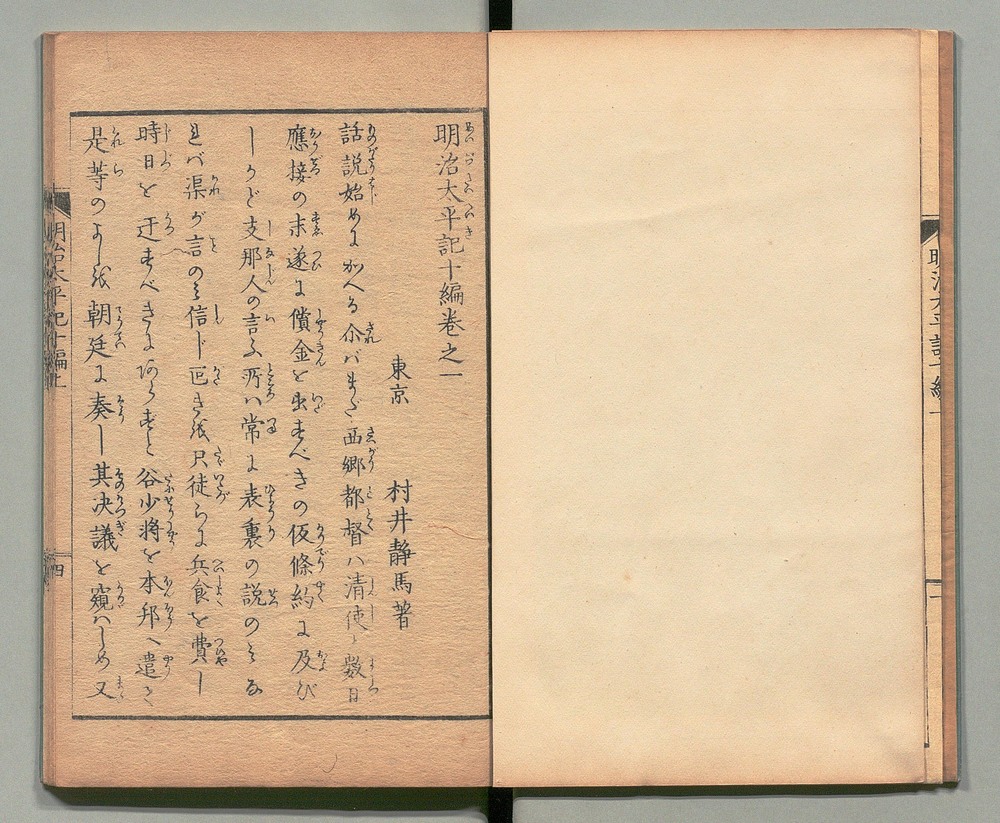 明治太平記十編巻之一
東京 村井静馬著
話説始めにかへる尒バまた西郷都督ハ清使と数日
應接の末遂に償金を出すべきの仮條約に及び
しかど支那人の言ふ所ハ常に表裏の説のみな
れバ渠が言のみ信じ叵きを只徒らに兵食を費し
時日を迂すべきにあらずと谷少将を本邦へ遣し
是等のよしを朝廷に奏し其决議を窺ハしめ又
明治太平記十編上
四
明治太平記十編
一